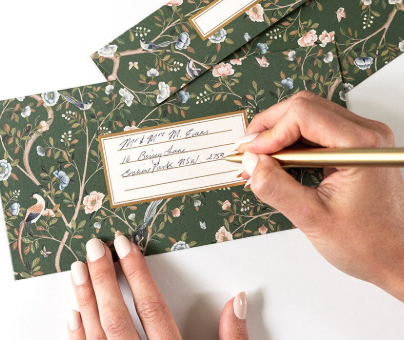 Mr & Mrs M. Evans
16 Lane
Erskine Park NSW 2759